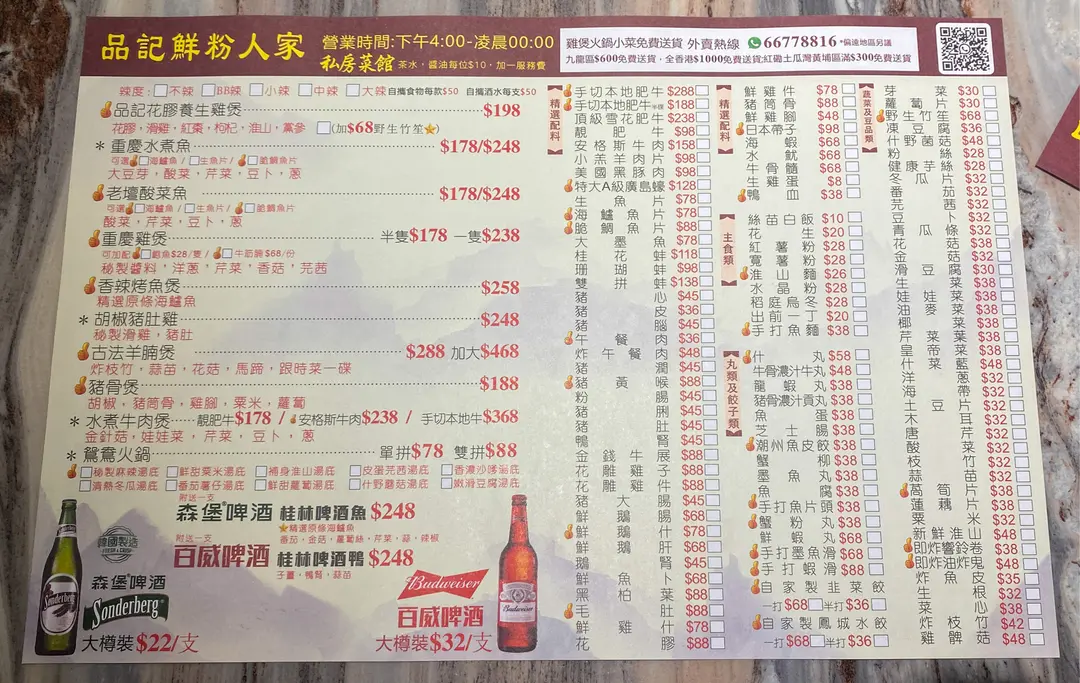 品記鮮粉人家
營業時間:下午4:00-凌晨00:00
私房菜館 茶水,醬油每位$10,加一服務費
雞煲火鍋小菜免費送貨 外賣熱線 66778816 *偏遠地區另議
九龍區$600免費送貨,全香港$1000免費送貨;紅磡土瓜灣黃埔區滿$300免費送貨
辣度: 不辣 BB辣 小辣 中辣 大辣 自攜食物每款$50 自攜酒水每支$50
品記花膠養生雞煲 $198
花膠,滑雞,紅棗,枸杞,淮山,黨參 (加$68野生竹笙)
*重慶水煮魚 $178/$248
可選 海鱸魚 / 生魚片 / 脆鯛魚片
大豆芽,酸菜,芹菜,豆卜,蔥
老壇酸菜魚 $178/$248
可選 海鱸魚 / 生魚片 / 脆鯛魚片
酸菜,芹菜,豆卜,蔥
重慶雞煲 半隻$178 一隻$238
可加配 鮑魚$28/隻 / 牛筋腩$68/份
秘製醬料,洋蔥,芹菜,香菇,芫茜
香辣烤魚煲 $258
精選原條海鱸魚
*胡椒豬肚雞 $248
秘製滑雞,豬肚
古法羊腩煲 $288 加大$468
炸枝竹,蒜苗,花菇,馬蹄,跟時菜一碟
豬骨煲 $188
胡椒,豬筒骨,雞腳,粟米,蘿蔔
*水煮牛肉煲 靚肥牛$178 / 安格斯牛肉$238 / 手切本地牛$368
金針菇,娃娃菜,芹菜,豆卜,蔥
*鴛鴦火鍋 單拼$78 雙拼$88
秘製麻辣湯底 鮮甜粟米湯底 補身淮山湯底 皮蛋芫茜湯底 香濃沙嗲湯底
清熱冬瓜湯底 番茄薯仔湯底 鮮甜蘿蔔湯底 什野蘑菇湯底 嫩滑豆腐湯底
附送一支
森堡啤酒 桂林啤酒魚 $248
精選原條海鱸魚
番茄,金菇,蘿蔔絲,芹菜,蒜,辣椒
附送一支
百威啤酒 桂林啤酒鴨 $248
子薑,鴨腎,蒜苗
韓國製造
FRESH & CRISP
森堡啤酒
Sonderberg
大樽裝$22/支
Budweiser
百威啤酒
大樽裝$32/支
精選配料
手切本地肥牛 $288
手切本地肥牛 半碟 $188
頂級雪花肥牛 $238
靚肥牛 $98
安格斯牛肉 $158
小羔羊肉片 $98
美國黑豚肉 $98
特大A級廣島蠔 $128
生魚片 $78
海鱸魚片 $78
脆鯛魚片 $88
大墨魚 $78
桂花蚌 $118
珊瑚蚌 $98
雙拼 $138
豬心 $45
豬皮 $36
豬腦 $45
午餐肉 $36
炸午餐肉 $48
豬潤 $45
豬黃喉 $88
粉腸 $45
豬脷 $45
豬肚 $45
鴨腎 $45
金錢牛展 $88
花雕雞子 $88
花雕雞件 $88
豬大腸 $45
鮮鵝腸 $68
鮮鵝紅 $78
鮮鵝肝 $68
鵝腎 $45
鮮魚卜 $68
黑柏葉 $88
毛肚 $88
鮮雞什 $78
花膠 $88
精選配料
鮮牛肉片 $78
豬筒骨 $88
鮮雞腳 $48
日本帶子 $98
海蝦 $68
水魷 $68
牛骨髓 $68
生雞蛋 $8
鴨血 $38
主食類
絲苗白飯 $10
花生 $20
紅薯粉 $28
寬薯粉 $28
淮山麵 $26
水晶粉 $28
稻庭烏冬 $28
出前一丁 $20
手打魚麵 $38
丸類及餃子類
什丸 $58
牛骨濃汁牛丸 $48
龍蝦丸 $38
豬骨濃汁貢丸 $38
魚蛋 $38
芝士腸 $38
潮州魚皮餃 $38
蟹柳 $38
墨魚丸 $38
魚腐 $38
手打魚片頭 $38
蟹粉丸 $38
鮮蝦丸 $68
手打墨魚滑 $68
手打蝦滑 $88
自家製韭菜餃
一打$68 半打$36
自家製鳳城水餃
一打$68 半打$36
蔬菜及豆品類
芽菜 $30
蘿蔔片 $30
野生竹笙 $68
凍豆腐 $36
什野菌菇 $48
粉絲 $28
健康芋絲 $28
冬瓜片 $32
番茄 $32
芫茜 $32
豆卜 $32
青瓜條 $32
花菇 $38
滑豆腐 $30
生菜 $38
娃娃菜 $38
油麥菜 $38
椰菜 $38
芹菜 $38
皇帝菜 $38
什菜藍 $48
洋蔥 $38
海帶 $32
土豆片 $32
木耳 $32
唐芹 $32
酸菜 $38
枝竹 $32
蒜苗 $32
萵筍 $38
蓮藕片 $38
粟米 $32
新鮮淮山 $48
即炸響鈴卷 $38
即炸油炸鬼 $48
炸魚皮 $35
生根 $32
菜心 $38
炸枝竹 $42
雞髀菇 $48